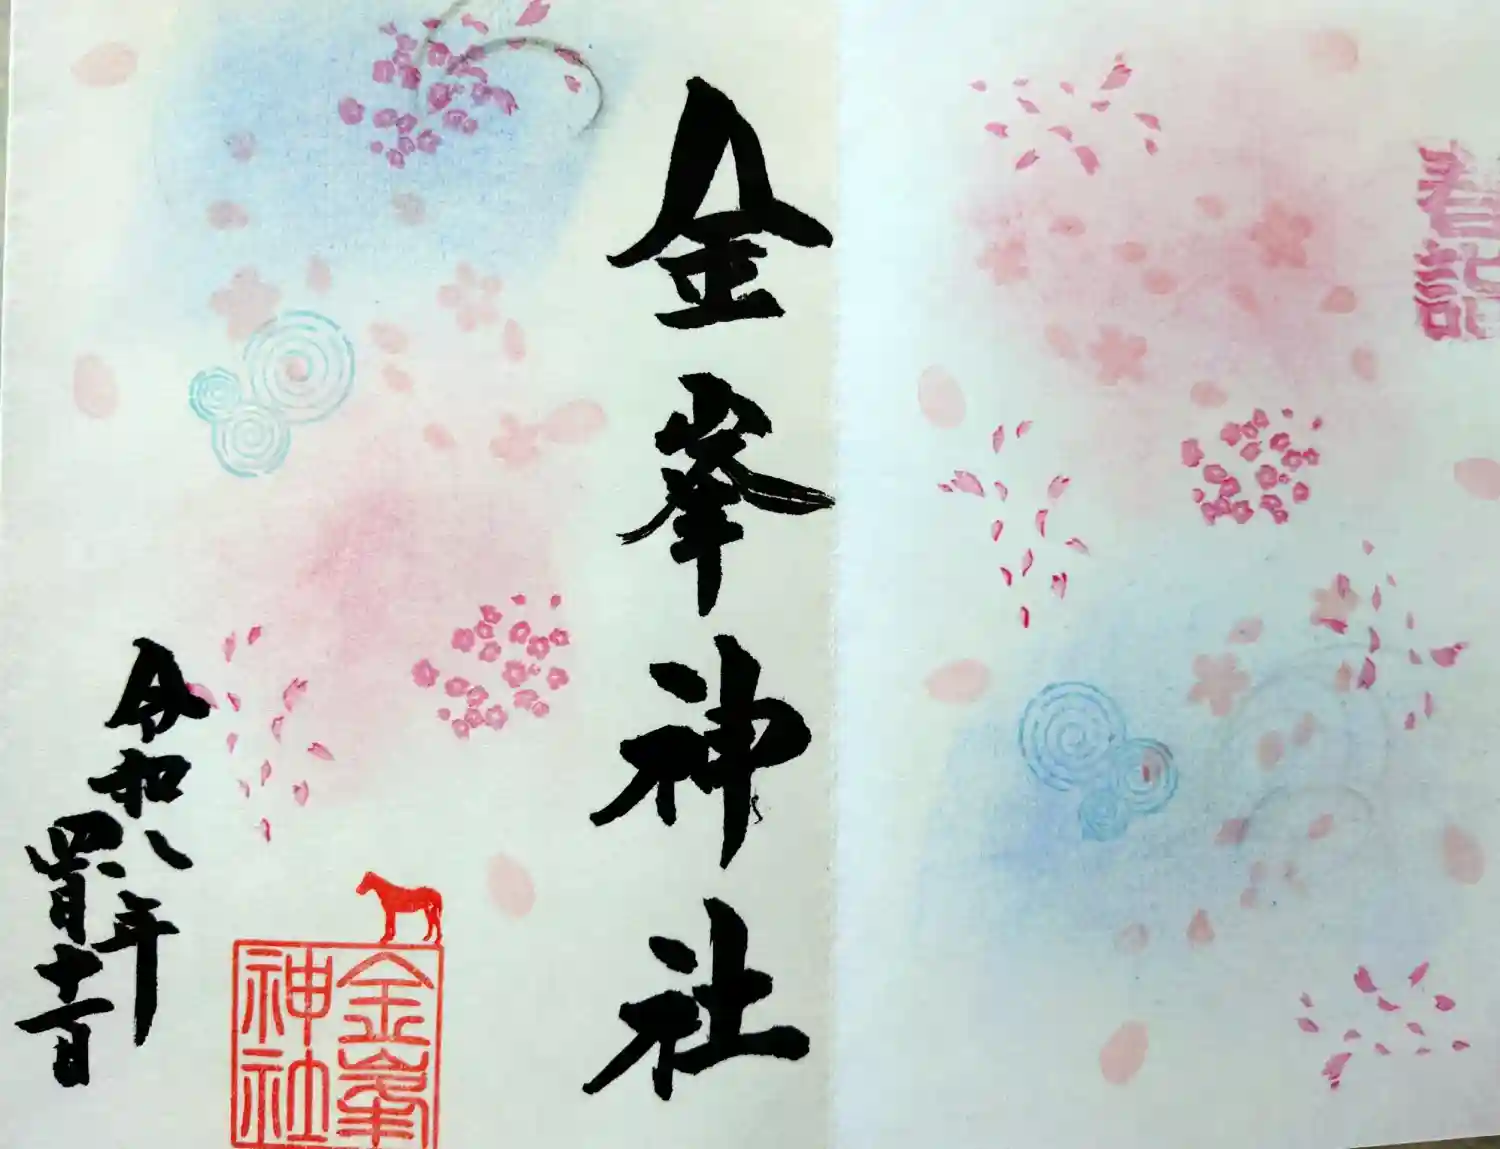 春詣
金峯神社
令和八年
四月十一日
金峯
神社